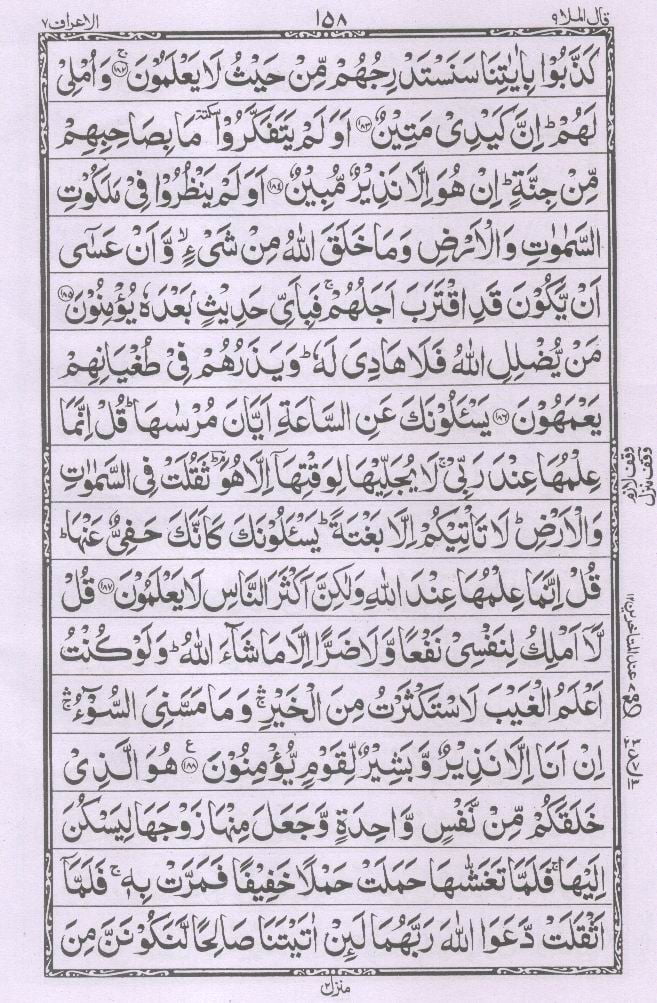 قال الملا ٩ ١٥٨ الاعراف ٧
كَذَّبُوْا بِاٰيٰتِنَا سَنَسْتَدْرِجُهُمْ مِّنْ حَيْثُ لَا يَعْلَمُوْنَ ۚ﴿١٨٢﴾ وَاُمْلِىْ
لَهُمْ ؕ اِنَّ كَيْدِىْ مَتِيْنٌ ﴿١٨٣﴾ اَوَلَمْ يَتَفَكَّرُوْا سكتة مَا بِصَاحِبِهِمْ
مِّنْ جِنَّةٍ ؕ اِنْ هُوَ اِلَّا نَذِيْرٌ مُّبِيْنٌ ﴿١٨٤﴾ اَوَلَمْ يَنْظُرُوْا فِىْ مَلَكُوْتِ
السَّمٰوٰتِ وَالْاَرْضِ وَمَا خَلَقَ اللّٰهُ مِنْ شَىْءٍ ۙ وَّاَنْ عَسٰٓى
اَنْ يَّكُوْنَ قَدِ اقْتَرَبَ اَجَلُهُمْ ۚ فَبِاَىِّ حَدِيْثٍۭ بَعْدَهٗ يُؤْمِنُوْنَ ﴿١٨٥﴾
مَنْ يُّضْلِلِ اللّٰهُ فَلَا هَادِىَ لَهٗ ؕ وَيَذَرُهُمْ فِىْ طُغْيَانِهِمْ
يَعْمَهُوْنَ ﴿١٨٦﴾ يَسْـَٔلُوْنَكَ عَنِ السَّاعَةِ اَيَّانَ مُرْسٰىهَا ؕ قُلْ اِنَّمَا
عِلْمُهَا عِنْدَ رَبِّىْ ۚ لَا يُجَلِّيْهَا لِوَقْتِهَآ اِلَّا هُوَ ؕ ثَقُلَتْ فِى السَّمٰوٰتِ
وقف لازم وقف منزل
وَالْاَرْضِ ؕ لَا تَاْتِيْكُمْ اِلَّا بَغْتَةً ؕ يَسْـَٔلُوْنَكَ كَاَنَّكَ حَفِىٌّ عَنْهَا ؕ
قُلْ اِنَّمَا عِلْمُهَا عِنْدَ اللّٰهِ وَلٰكِنَّ اَكْثَرَ النَّاسِ لَا يَعْلَمُوْنَ ﴿١٨٧﴾ قُلْ
لَّآ اَمْلِكُ لِنَفْسِىْ نَفْعًا وَّلَا ضَرًّا اِلَّا مَا شَآءَ اللّٰهُ ؕ وَلَوْ كُنْتُ
اَعْلَمُ الْغَيْبَ لَاسْتَكْثَرْتُ مِنَ الْخَيْرِ ۛۚ وَمَا مَسَّنِىَ السُّوْٓءُ ۛۚ
عند المتاخرين ١٢
اِنْ اَنَا اِلَّا نَذِيْرٌ وَّبَشِيْرٌ لِّقَوْمٍ يُّؤْمِنُوْنَ ﴿١٨٨﴾ هُوَ الَّذِىْ
خَلَقَكُمْ مِّنْ نَّفْسٍ وَّاحِدَةٍ وَّجَعَلَ مِنْهَا زَوْجَهَا لِيَسْكُنَ
اِلَيْهَا ۚ فَلَمَّا تَغَشّٰىهَا حَمَلَتْ حَمْلًا خَفِيْفًا فَمَرَّتْ بِهٖ ۚ فَلَمَّآ
اَثْقَلَتْ دَّعَوَا اللّٰهَ رَبَّهُمَا لَئِنْ اٰتَيْتَنَا صَالِحًا لَّنَكُوْنَنَّ مِنَ
منزل ٢